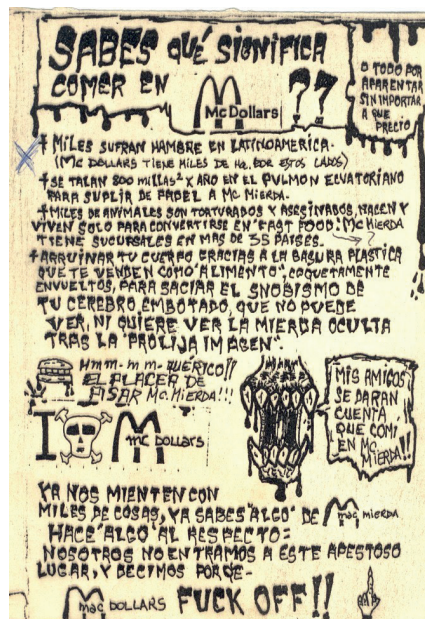 SABÉS QUÉ SIGNIFICA
COMER EN
McDollars ??
O TODO POR
APARENTAR
SIN IMPORTAR
A QUE
PRECIO
† MILES SUFRAN HAMBRE EN LATINOAMERICA.
(Mc DOLLARS TIENE MILES DE Ha. POR ESTOS LADOS)
† SE TALAN 800 MILLAS² X AÑO EN EL PULMON ECUATORIANO
PARA SUPLIR DE PAPEL A Mc MIERDA.
† MILES DE ANIMALES SON TORTURADOS Y ASESINADOS, NACEN Y
VIVEN SOLO PARA CONVERTIRSE EN "FAST FOOD". Mc MIERDA
TIENE SUCURSALES EN MAS DE 35 PAISES.
† ARRUINAR TU CUERPO GRACIAS A LA BASURA PLASTICA
QUE TE VENDEN COMO "ALIMENTO", COQUETAMENTE
ENVUELTOS, PARA SACIAR EL SNOBISMO DE
TU CEREBRO EMBOTADO, QUE NO PUEDE
VER, NI QUIERE VER LA MIERDA OCULTA
TRAS LA "PROLIJA IMAGEN".
Hmm-m-m-
EL PLACER DE
PISAR Mc. MIERDA!!!
I mc Dollars
MIS AMIGOS
SE DARAN
CUENTA
QUE COMI
EN Mc
MIERDA!!
YA NOS MIENTEN CON
MILES DE COSAS, YA SABES "ALGO" DE mac MIERDA
HACE "ALGO" AL RESPECTO:
NOSOTROS NO ENTRAMOS A ESTE APESTOSO
LUGAR, Y DECIMOS PORQE-
mac DOLLARS FUCK OFF!!